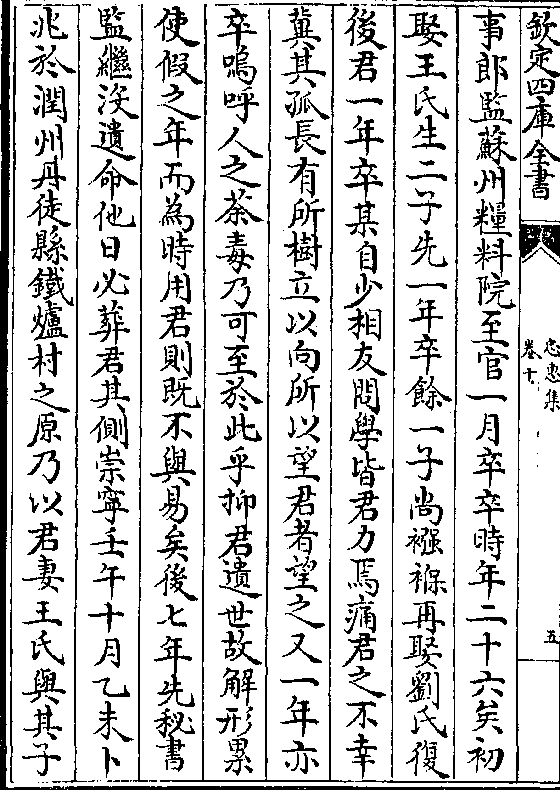 欽定四庫全書
忠惠集
卷十
五
事郎監蘇州糧料院至官一月卒卒時年二十六矣初
娶王氏生二子先一年卒餘一子尚襁褓再娶劉氏復
後君一年卒某自少相友問學皆君力焉痛君之不幸
冀其孤長有所樹立以向所以望君者望之又一年亦
卒嗚呼人之荼毒乃可至於此乎抑君遺世故解形累
使假之年而為時用君則既不與易矣後七年先秘書
監繼沒遺命他日必葬君其側崇寧壬午十月乙未卜
兆於潤州丹徒縣鐵爐村之原乃以君妻王氏與其子